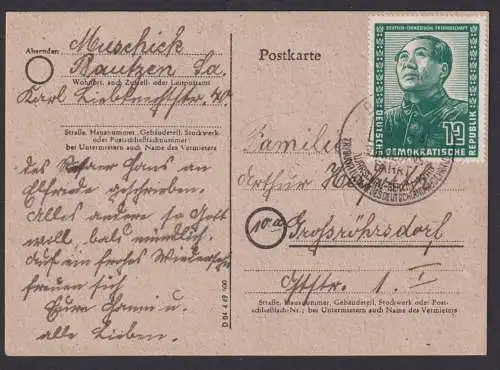 Absender:
Muschick
Bautzen Sa.
Wohnort, auch Zustell- oder Leitpostamt
Karl Liebknechtstr. 40
Straße, Hausnummer, Gebäudeteil, Stockwerk
oder Postschließfachnummer;
bei Untermietern auch Name des Vermieters
des Hans an
Elfriede geschrieben.
Alles andere so Gott
will, bald mündlich.
Auf ein frohes Wiedersehn
freuen sich
Eure Hanni u.
alle Lieben.
D 04 4 49 400
Postkarte
DEUTSCH-CHINESISCHE FREUNDSCHAFT
DEUTSCHE
12
DEMOKRATISCHE
REPUBLIK
Familie
Arthur
10a
Großröhrsdorf
1. I
Straße, Hausnummer, Gebäudeteil, Stockwerk oder Post-
schließfach-Nr.; bei Untermietern auch Name des Vermieters